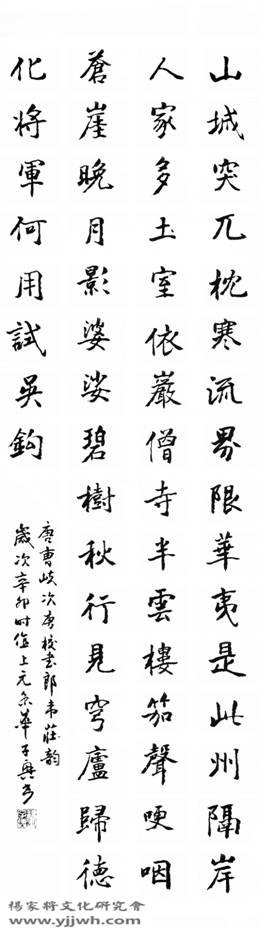 山城突兀枕寒流界限華夷是此州隔岸
人家多土室依巖僧寺半雲樓笳聲哽咽
蒼崖晚月影婆娑碧樹秋行見穹廬歸德
化將軍何用試吳鉤
唐曹岐次唐校書郎韋莊韻
歲次辛卯時值上元
楊家將文化研究會
www.yjjwh.com